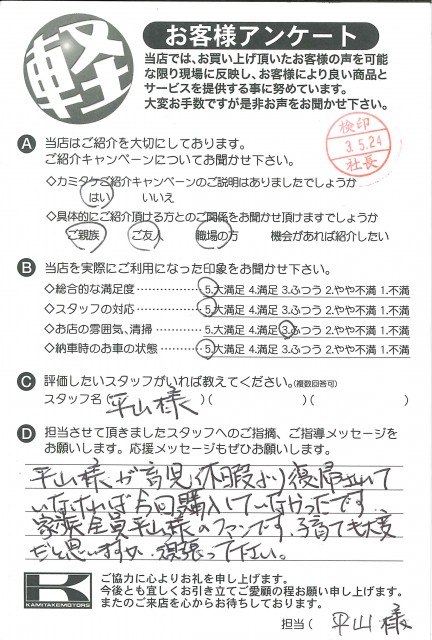 軽
お客様アンケート
当店では、お買い上げ頂いたお客様の声を可能
な限り現場に反映し、お客様により良い商品と
サービスを提供する事に努めています。
大変お手数ですが是非お声をお聞かせ下さい。
検印
3.5.24
社長
A 当店はご紹介を大切にしております。
ご紹介キャンペーンについてお聞かせ下さい。
◇カミタケご紹介キャンペーンのご説明はありましたでしょうか
はい いいえ
◇具体的にご紹介頂ける方とのご関係をお聞かせ頂けますでしょうか
ご親族 ご友人 職場の方 機会があれば紹介したい
B 当店を実際にご利用になった印象をお聞かせ下さい。
◇総合的な満足度 5.大満足 4.満足 3.ふつう 2.やや不満 1.不満
◇スタッフの対応 5.大満足 4.満足 3.ふつう 2.やや不満 1.不満
◇お店の雰囲気、清掃 5.大満足 4.満足 3.ふつう 2.やや不満 1.不満
◇納車時のお車の状態 5.大満足 4.満足 3.ふつう 2.やや不満 1.不満
C 評価したいスタッフがいれば教えてください。(複数回答可)
スタッフ名(平山様)( )( )
D 担当させて頂きましたスタッフへのご指摘、ご指導メッセージを
お願いします。応援メッセージもぜひお願いします。
平山様が育児休暇より復帰されて
いなければ今回購入していなかったです。
家族全員平山様のファンです。子育ても大変
だと思いますが、頑張って下さい。
K
KAMITAKEMOTORS
ご協力に心よりお礼を申し上げます。
今後とも宜しくお引き立てご愛顧の程お願い申し上げます。
またのご来店を心からお待ちしております。
担当( 平山様